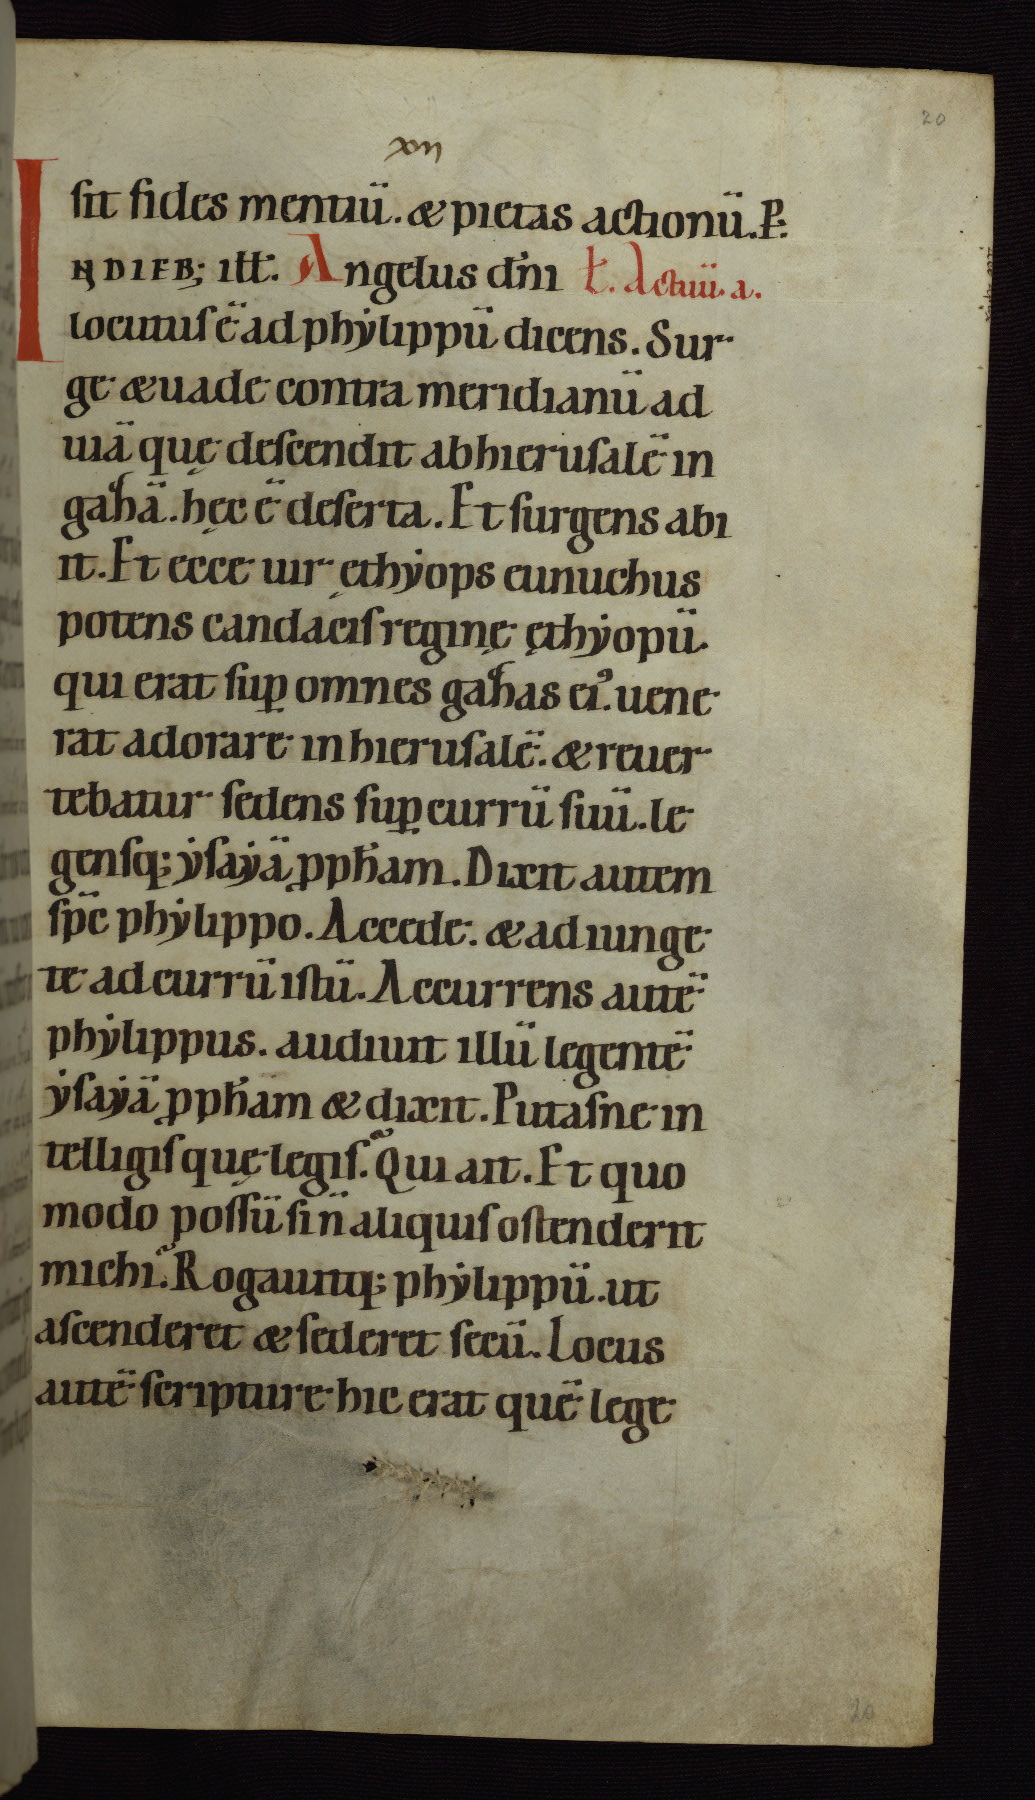 20
xII
sit fides mentiū. & pietas actionū. P.
INDIEB; ıłł. Angelus dn̄i ł. Actuū. a.
locutus ē ad phẏlippū dicens. Sur
ge & uade contra meridianū ad
uiā quę descendit ab hierusalē in
gazā. hęc ē deserta. Et surgens abi
it. Et ecce uir ęthẏops eunuchus
potens candacis reginę ęthẏopū.
qui erat sup̱ omnes gazas ei᾿. uene
rat adorare in hierusalē. & reuer
tebatur sedens sup̱ currū suū. le
gensq; ẏsaẏā ꝓph̄am. Dixit autem
sp̄c phẏlippo. Accede. & adiunge
te ad currū istū. Accurrens autē
phẏlippus. audiuit illū legentē
ẏsaẏā ꝓph̄am & dixit. Putasne in
telligis quę legis. Qui ait. Et quo
modo possū si n̄ aliquis ostenderit
michi. Rogauitq; phẏlippū. ut
ascenderet & sederet secū. Locus
autē scripture hic erat quē lege
20